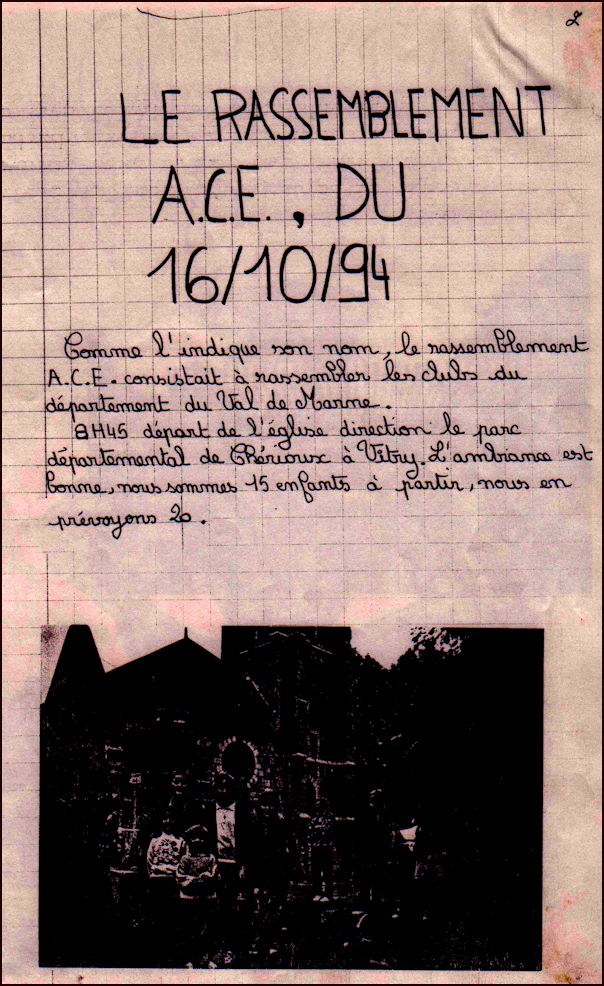 2
LE RASSEMBLEMENT
A.C.E., DU
16/10/94
Comme l'indique son nom, le rassemblement
A.C.E. consistait à rassembler les clubs du
département du Val de Marne.
8H45 départ de l'église direction le parc
départemental de Chérioux à Vitry. L'ambiance est
bonne, nous sommes 15 enfants à partir, nous en
prévoyons 20.